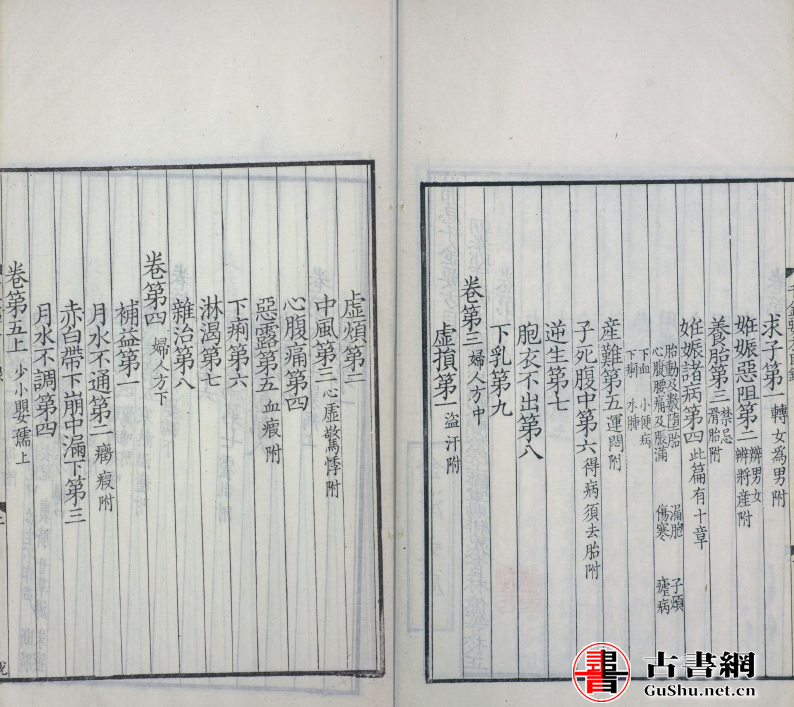 求子第一轉女為男附
姙娠惡阻第二辨男女辨將產附
養胎第三禁忌滑胎附
姙娠諸病第四此篇有十章
胎動及數墮胎 漏胞 子煩
心腹腰痛及脹滿 傷寒 瘧病
下血 小便病
下痢 水腫
産難第五運悶附
子死腹中第六得病須去胎附
逆生第七
胞衣不出第八
下乳第九
卷第三婦人方中
虛損第一盜汗附
虛煩第二
中風第三心虛驚悸附
心腹痛第四
惡露第五血瘕附
下痢第六
淋渴第七
雜治第八
卷第四 婦人方下
補益第一
月水不通第二癥瘕附
赤白帶下崩中漏下第三
月水不調第四
卷第五上 少小嬰孺上
書
古書網
GuShu.net.cn